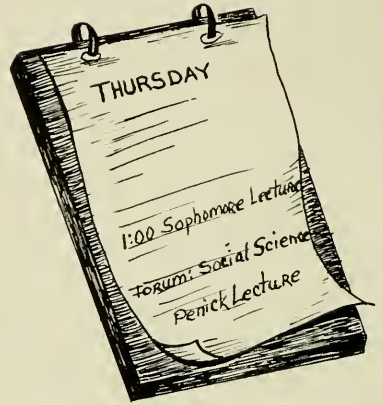 THURSDAY
1:00 Sophomore Lecture
Forum: Social Science
Penick Lecture